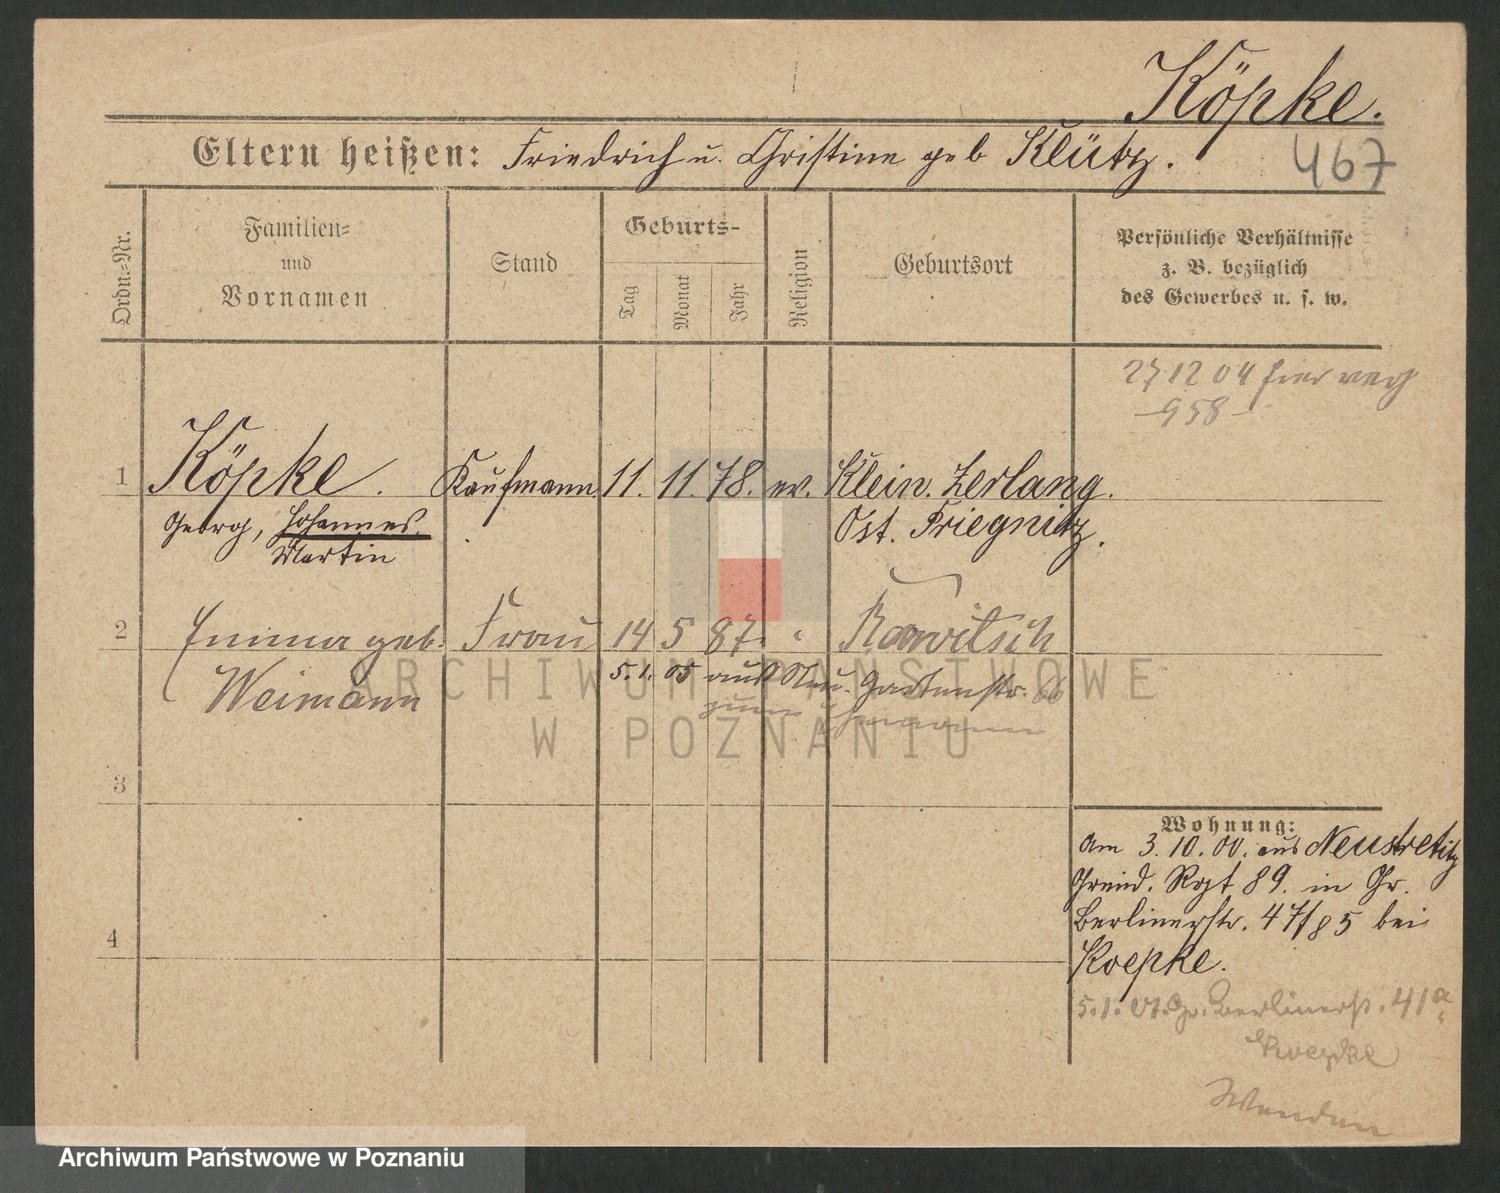 Köpke.
Eltern heißen: Friedrich u. Christine geb Klütz.
467
Ordn.-Nr.
Familien-
und
Vornamen
Stand
Geburts-
Tag
Monat
Jahr
Religion
Geburtsort
Persönliche Verhältnisse
z. B. bezüglich
des Gewerbes u. s. w.
27 12 04 hier
-958-
1 Köpke. Kaufmann 11. 11. 78. ev. Klein. Zerlang.
Georg, Johannes, Ost. Priegnitz.
Martin
2 Emma geb. Frau 14 5 87. " Rawitsch
Weimann
5.1.05 aus Neu. Gartenstr. 66
zum Ehemann
ARCHIWUM PAŃSTWOWE
W POZNANIU
3
4
Wohnung:
Am 3. 10. 00. aus Neustrelitz
Grend. Rgt 89. in Gr.
Berlinerstr. 47/85 bei
Koepke.
5.1. 01. Gr. Berlinerst. 41a
Koepke
Wenden
Archiwum Państwowe w Poznaniu